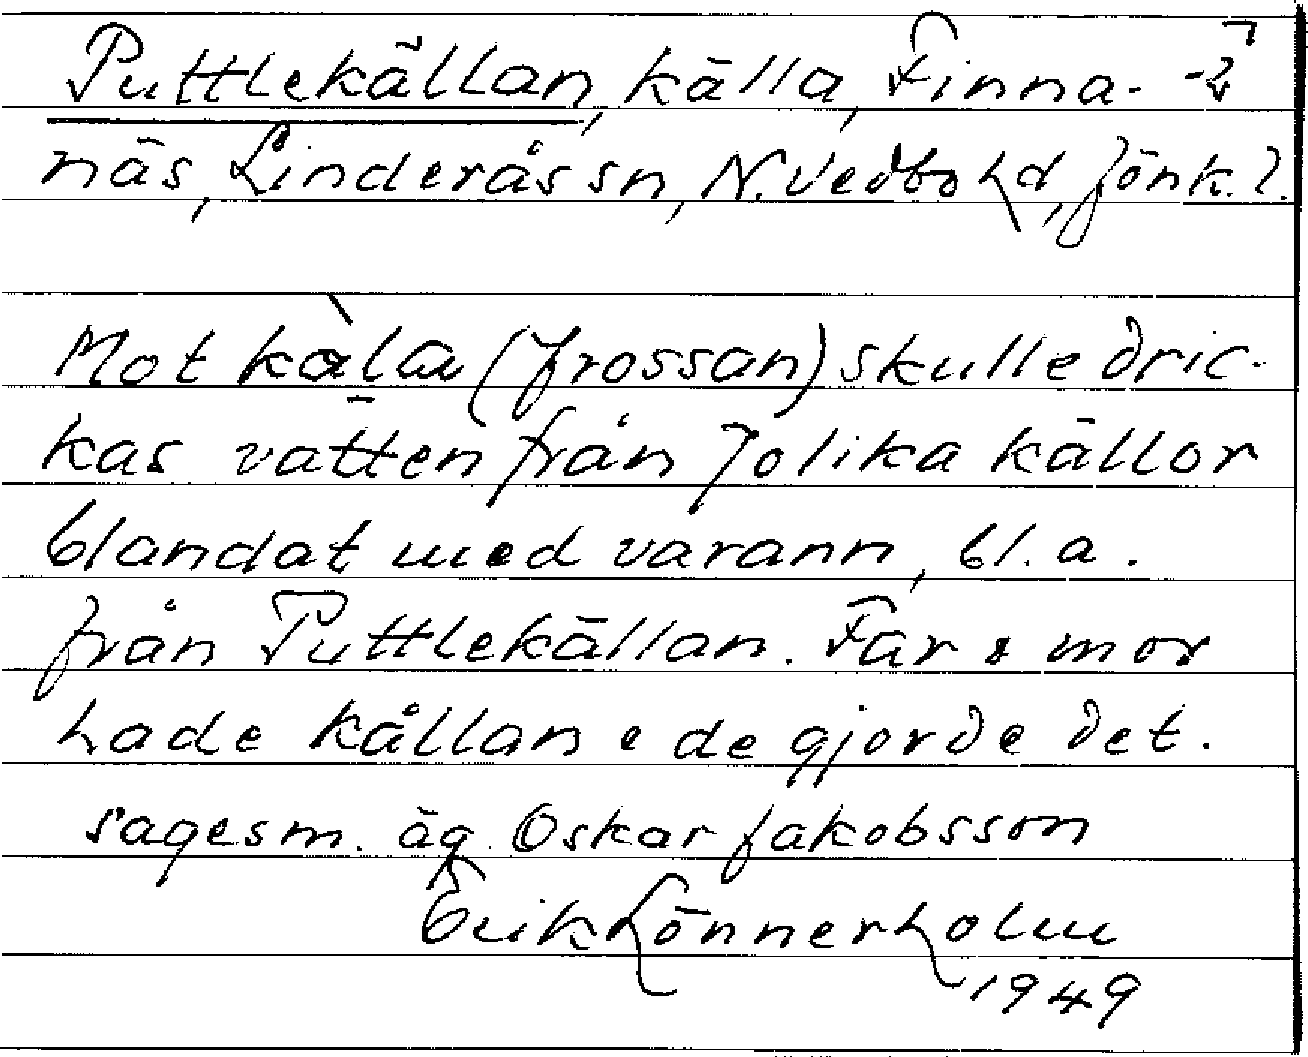 Puttlekällan, källa, Finna-
näs, Linderås sn, N. Vedbo hd, Jönk. l.
Mot kàla (frossan) skulle dric-
kas vatten från 7 olika källor
blandat med varann, bl. a.
från Puttlekällan. Far & mor
hade källan & de gjorde det.
sagesm. äg. Oskar Jakobsson
Erik Lönnerholm
1949